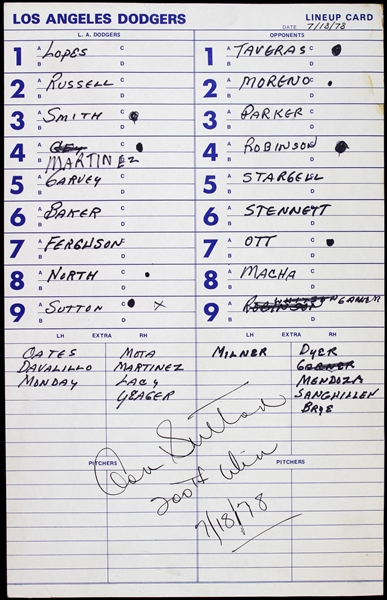 LOS ANGELES DODGERS LINEUP CARD
DATE 7/18/78
L. A. DODGERS OPPONENTS
1 A B LOPES C D 1 A B TAVERAS C D
2 A B RUSSELL C D 2 A B MORENO C D
3 A B SMITH C D 3 A B PARKER C D
4 A B CEY MARTINEZ C D 4 A B ROBINSON C D
5 A B GARVEY C D 5 A B STARGELL C D
6 A B BAKER C D 6 A B STENNETT C D
7 A B FERGUSON C D 7 A B OTT C D
8 A B NORTH C D 8 A B MACHA C D
9 A B SUTTON C D X 9 A B ROBINSON C D
LH EXTRA RH LH EXTRA RH
OATES MOTA MILNER DYER
DAVALILLO MARTINEZ GARNER
MONDAY LACY MENDOZA
YEAGER SANGHILLEN
BRYE
PITCHERS PITCHERS
Don Sutton
200th Win
7/18/78